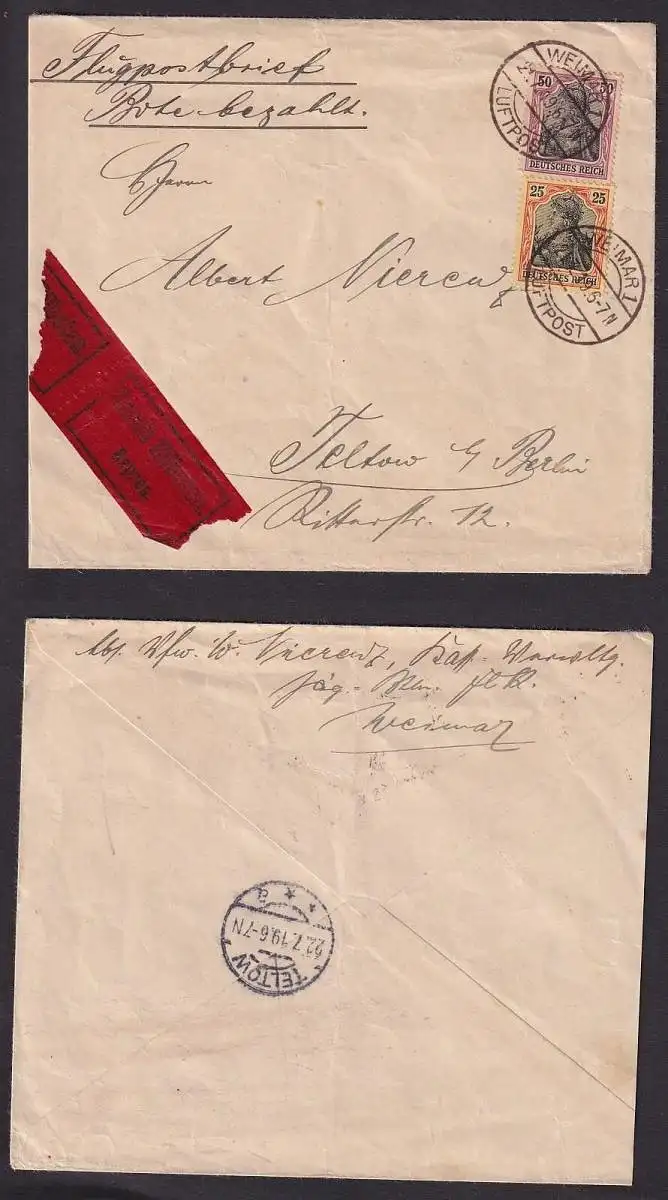 Flugpostbrief
Bote bezahlt.
Herrn
Albert Nierenz
Teltow b/ Berlin
Ritterstr. 12.
50 50
DEUTSCHES REICH
25 25
DEUTSCHES REICH
WEIMAR 1
LUFTPOST
WEIMAR 1
6-7 N
LUFTPOST
Abs. Vfw. W. Nierenz,
Weimar
TELTOW
22.7.19.6-7N
* * a